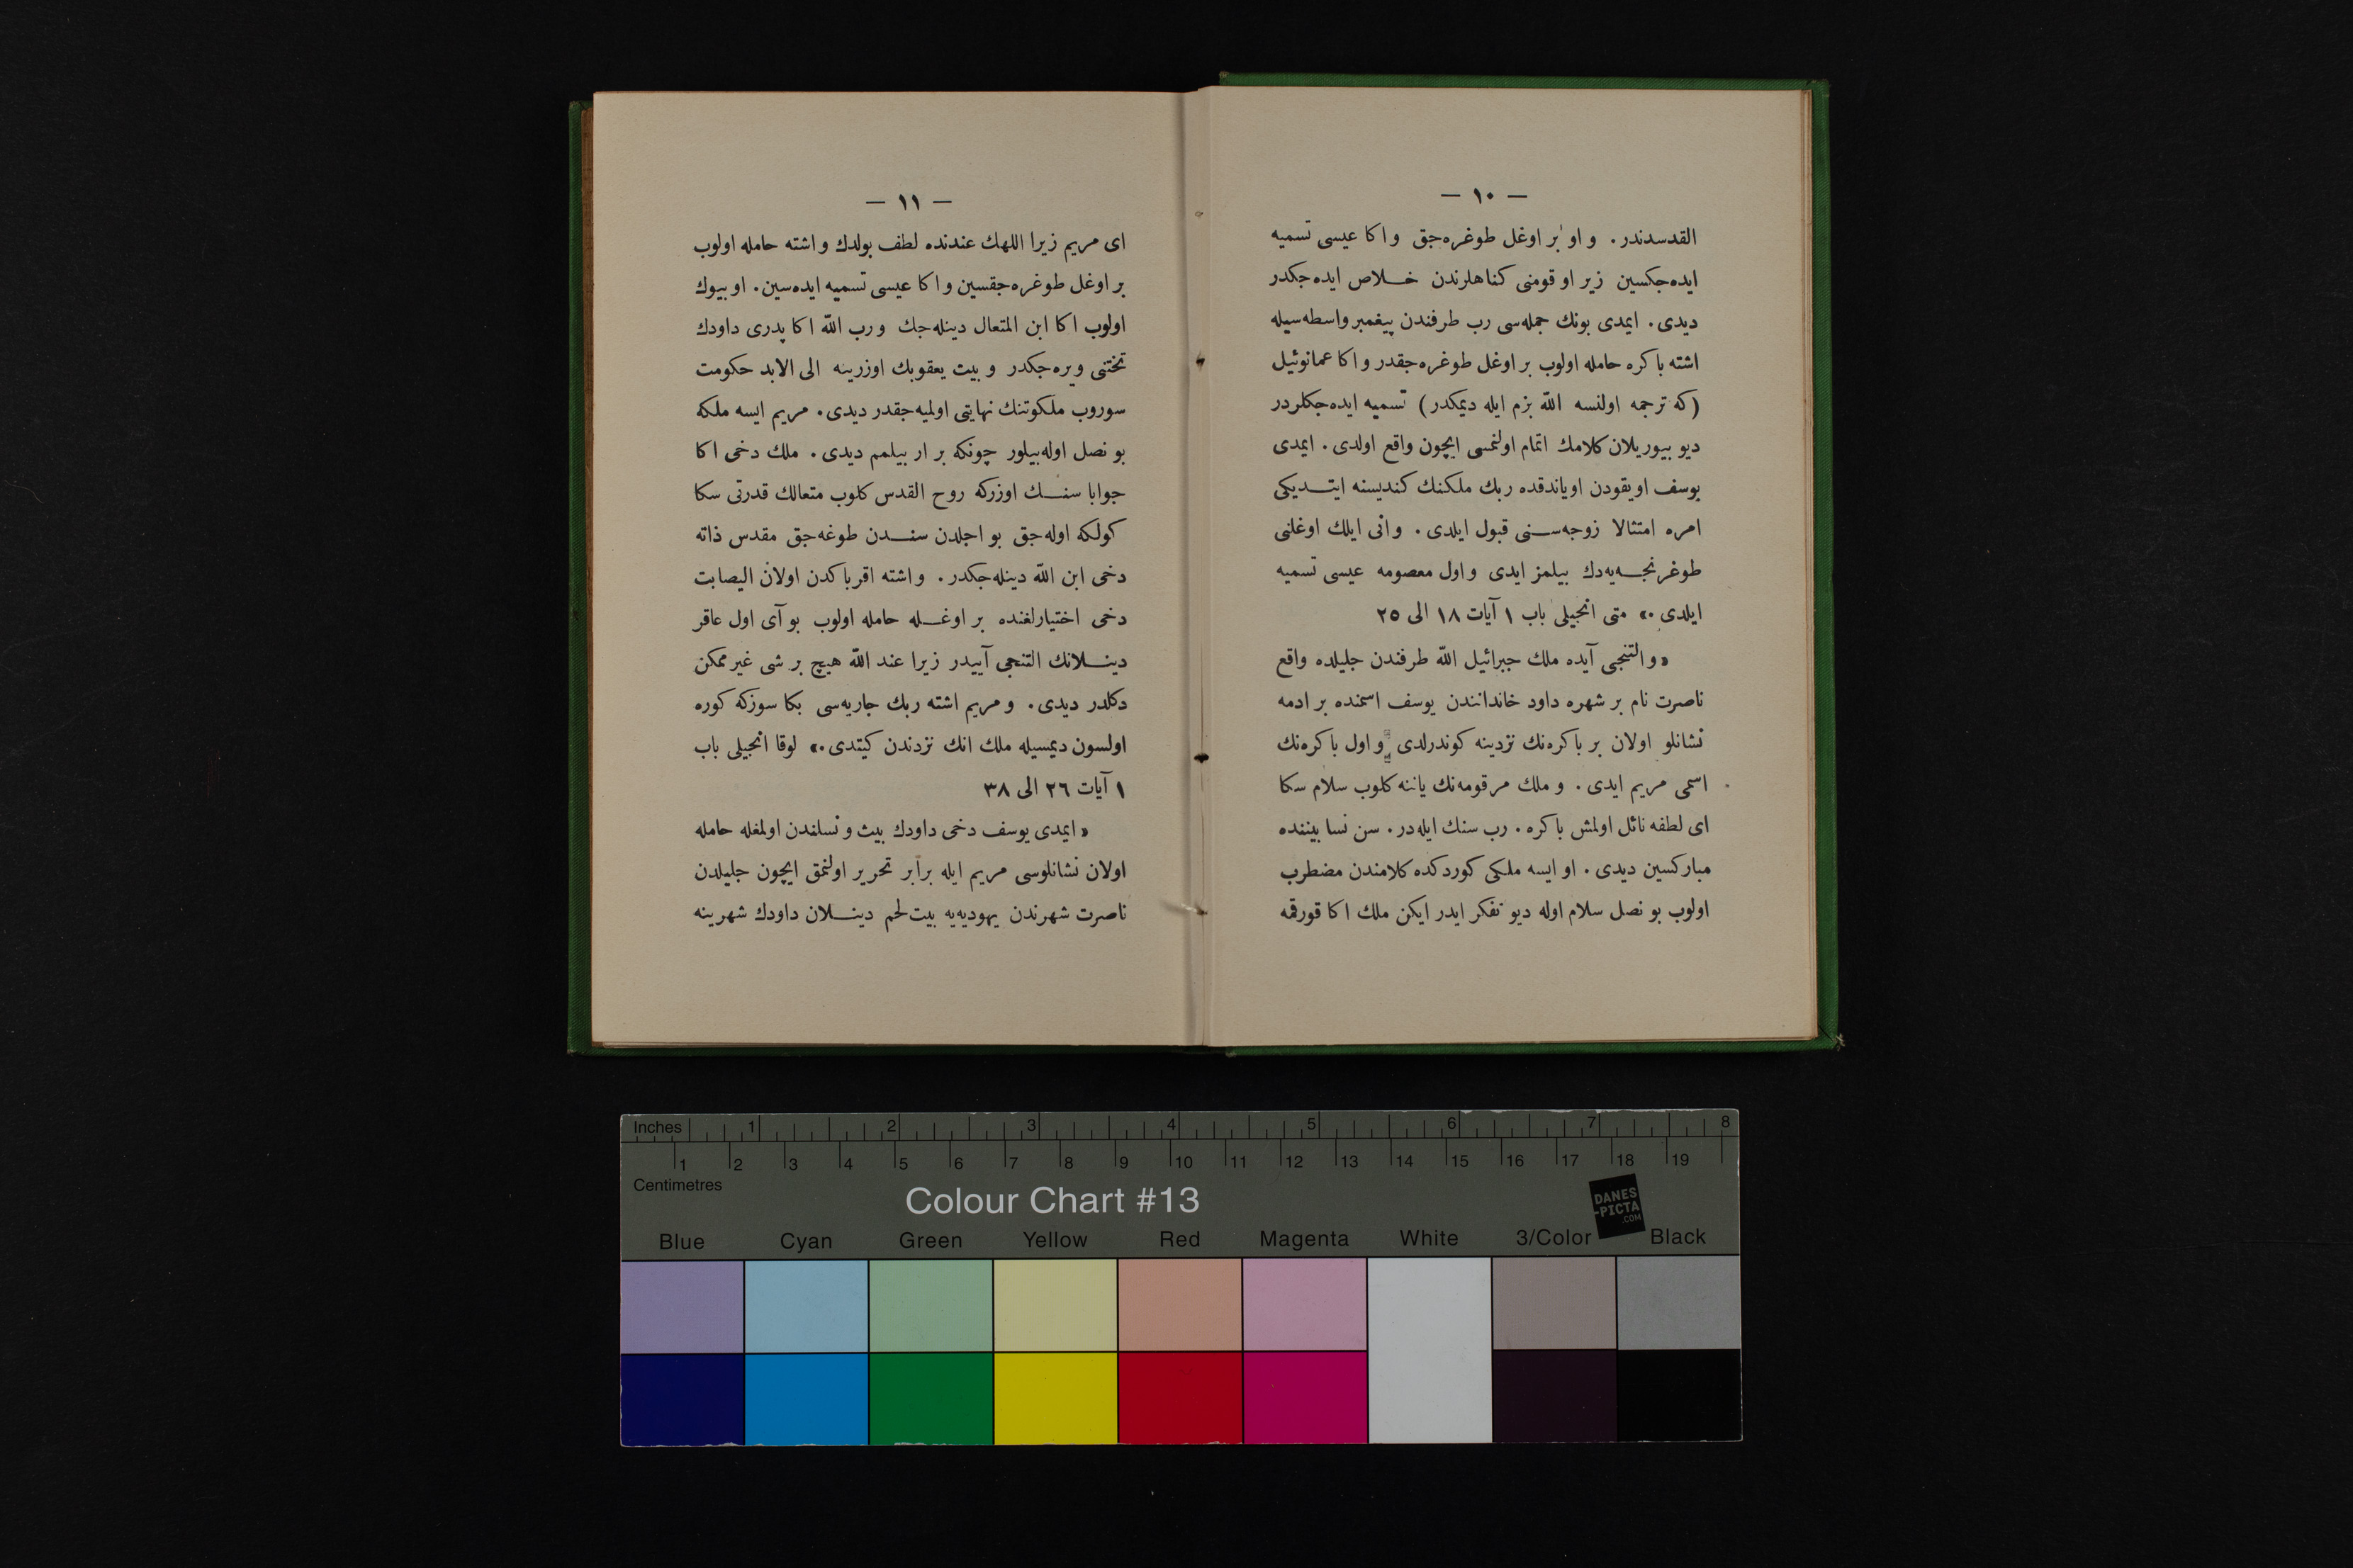 — ١٠ —
القدسدندر . و او بر اوغل طوغره‌جق و اكا عیسی تسمیه
ایده‌جكسین زیر او قومنی كناهلرندن خـــلاص ایده‌جكدر
دیدی . ایمدی بونك جمله‌سی رب طرفندن پیغمبر واسطه‌سیله
اشته باكره حامله اولوب بر اوغل طوغره‌جقدر و اكا عمانوئیل
(كه ترجمه اولنسه الله بزم ایله دیمكدر) تسمیه ایده‌جكلردر
دیو بیوریلان كلامك اتمام اولنمسی ایچون واقع اولدی . ایمدی
یوسف اویقودن اویاندقده ربك ملكنك كندیسنه ایتـــدیكی
امره امتثالا زوجه‌ســـنی قبول ایلدی . و انی ایلك اوغلنی
طوغرنجـــه‌یه‌دك بیلمز ایدی و اول معصومه عیسی تسمیه
ایلدی .» متی انجیلی باب ١ آیات ١٨ الی ٢٥
« و التنجی آیده ملك جبرائیل الله طرفندن جلیلده واقع
ناصرت نام بر شهره داود خاندانندن یوسف اسمنده بر ادمه
نشانلو اولان بر باكره‌نك نزدینه كوندرلدی و اول باكره‌نك
اسمی مریم ایدی . و ملك مرقومه‌نك یاننه كلوب سلام سكا
ای لطفه نائل اولمش باكره . رب سنك ایله‌در . سن نسا بیننده
مباركسین دیدی . او ایسه ملكی كوردكده كلامندن مضطرب
اولوب بو نصل سلام اوله دیو تفكر ایدر ایكن ملك اكا قورقمه
— ١١ —
ای مریم زیرا اللهك عندنده لطف بولدك و اشته حامله اولوب
بر اوغل طوغره‌جقسین و اكا عیسی تسمیه ایده‌سین . او بیوك
اولوب اكا ابن المتعال دینله‌جك و رب الله اكا پدری داودك
تختنی ویره‌جكدر و بیت یعقوبك اوزرینه الی الابد حكومت
سوروب ملكوتنك نهایتی اولمیه‌جقدر دیدی . مریم ایسه ملكه
بو نصل اوله‌بیلور چونكه بر ار بیلمم دیدی . ملك دخی اكا
جوابا سنـــك اوزركه روح القدس كلوب متعالك قدرتی سكا
كولكه اوله‌جق بو اجلدن سنـــدن طوغه‌جق مقدس ذاته
دخی ابن الله دینله‌جكدر . و اشته اقرباكدن اولان الیصابت
دخی اختیارلغنده بر اوغـــله حامله اولوب بو آی اول عاقر
دینـــلانك التنجی آییدر زیرا عند الله هیچ بر شی غیر ممكن
دكلدر دیدی . و مریم اشته ربك جاریه‌سی بكا سوزكه كوره
اولسون دیمسیله ملك انك نزدندن كیتدی .» لوقا انجیلی باب
١ آیات ٢٦ الی ٣٨
« ایمدی یوسف دخی داودك بیت و نسلندن اولمغله حامله
اولان نشانلوسی مریم ایله برابر تحریر اولنمق ایچون جلیلدن
ناصرت شهرندن یهودیه‌یه بیت‌لحم دینـــلان داودك شهرینه
Inches 1 2 3 4 5 6 7 8
1 2 3 4 5 6 7 8 9 10 11 12 13 14 15 16 17 18 19
Centimetres
Colour Chart #13
DANES
-PICTA
.COM
Blue Cyan Green Yellow Red Magenta White 3/Color Black